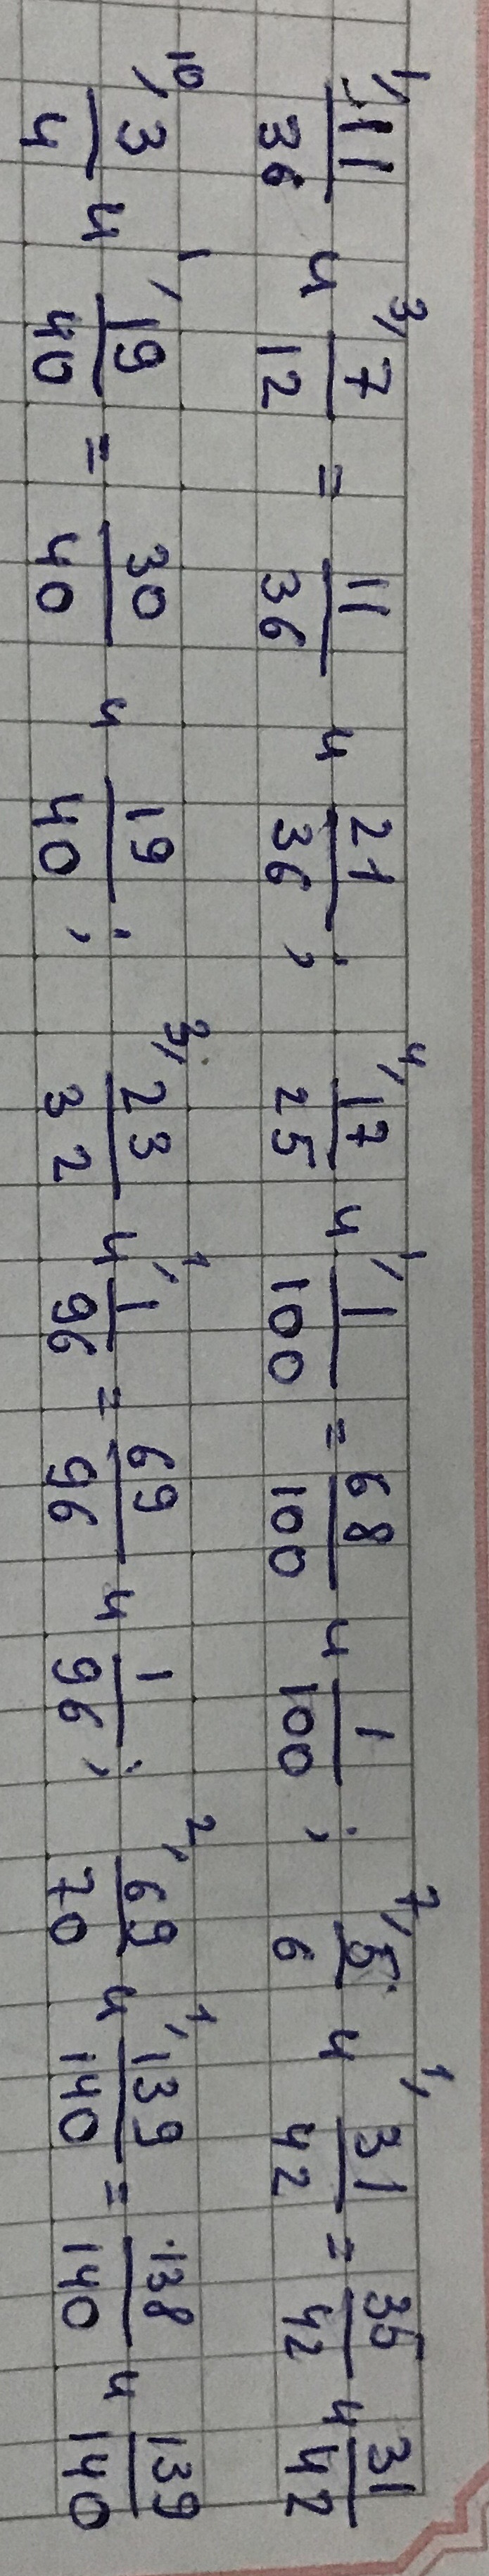 1/ 11/36 и 3/ 7/12 = 11/36 и 21/36 ; 4/ 17/25 и 1/ 1/100 = 68/100 и 1/100 ; 7/ 5/6 и 1/ 31/42 = 35/42 и 31/42
10/ 3/4 и 1/ 19/40 = 30/40 и 19/40 ; 3/ 23/32 и 1/ 1/96 = 69/96 и 1/96 ; 2/ 69/70 и 1/ 139/140 = 138/140 и 139/140